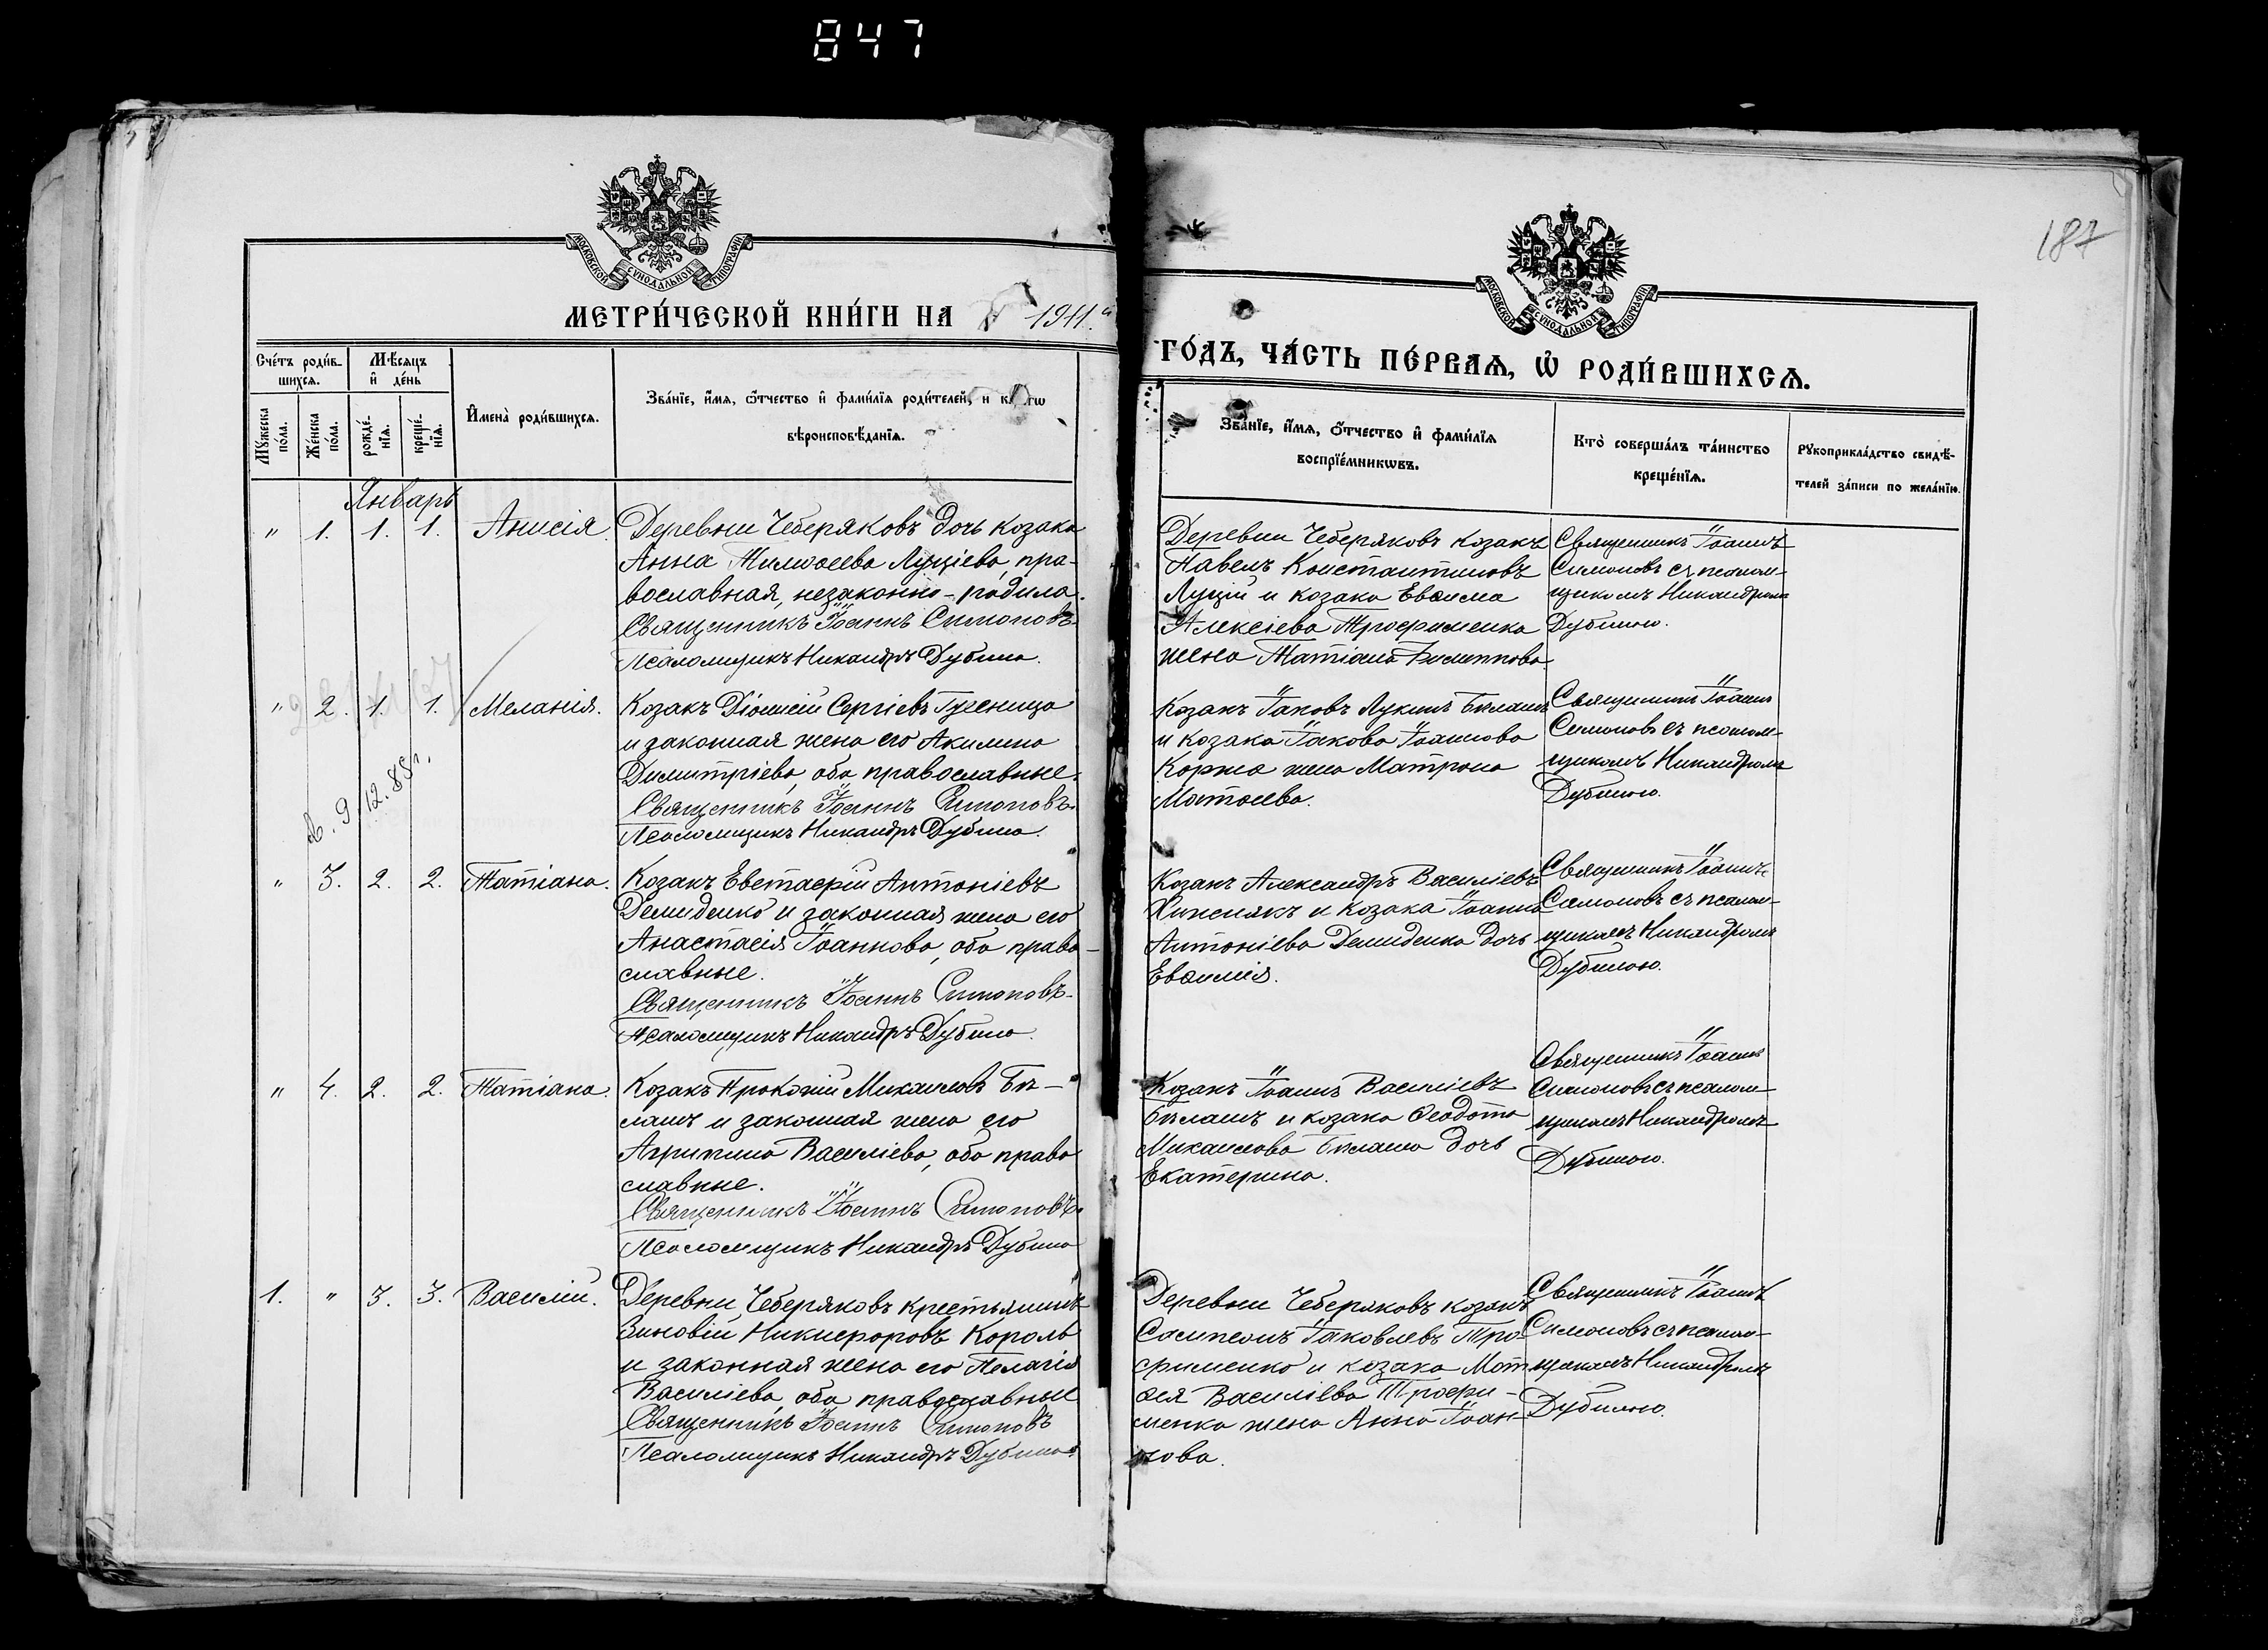 847
187
МОСКОВСКОЙ СѴНОДАЛЬНОЙ ТИПОГРАФІИ
МЕТРИ́ЧЕСКОЙ КНИ́ГИ НА 1911.й
МОСКОВСКОЙ СѴНОДАЛЬНОЙ ТИПОГРАФІИ
ГО́ДЪ, ЧА́СТЬ ПЕ́РВАѦ, Ѽ РОДИ́ВШИХСѦ.
Сче́тъ роди́в-
шихсѧ.
Мѣ́сѧцъ
и҆ де́нь
Мꙋ́жеска по́ла.
Же́нска по́ла.
рожде́-нїѧ.
креще́-нїѧ.
И҆мена̀ роди́вшихсѧ.
Зва́нїе, и҆́мѧ, ѻ҆́тчество и҆ фами́лїѧ роди́телей, и
вѣроисповѣ́данїѧ.
Зва́нїе, и҆́мѧ, ѻ҆́тчество и҆ фами́лїѧ
воспрїе́мникѡвъ.
Кто̀ соверша́лъ та́инство
креще́нїѧ.
Рꙋкоприкла́дство свидѣ́-
телей за́писи по жела́нїю.
Январь
" 1. 1. 1. Анисія.
Деревни Чеберяковъ дочь козака
Анна Тимоѳеева Луціева, пра-
вославная, незаконно-родила.
Священникъ Іоаннъ Симоновъ.
Псаломщикъ Никандръ Дубина.
Деревни Чеберяковъ козакъ
Павелъ Константиновъ
Луцій и козака Евѳима
Алексіева Трофименка
жена Татіана
Священникъ Іоаннъ
Симоновъ съ псалом-
щикомъ Никандромъ
Дубиною.
" 2. 1. 1. Меланія.
в. 9.12.85г.
Козакъ Діонисій Сергіевъ Гусеница
и законная жена его Акилина
Димитріева, оба православные.
Священникъ Іоаннъ Симоновъ.
Псаломщикъ Никандръ Дубина.
Козакъ Іаковъ Лукинъ Билашъ
и козака Іакова Іоаннова
Коржа жена Матрона
Матѳеева.
Священникъ Іоаннъ
Симоновъ съ псалом-
щикомъ Никандромъ
Дубиною.
" 3. 2. 2. Татіана.
Козакъ Евстафій Антоніевъ
Демиденко и законная жена его
Анастасія Іоаннова, оба право-
славные.
Священникъ Іоаннъ Симоновъ.
Псаломщикъ Никандръ Дубина.
Козакъ Александръ Василіевъ
Хижнякъ и козака Іоанна
Антоніева Демиденка дочь
Евѳимія.
Священникъ Іоаннъ
Симоновъ съ псалом-
щикомъ Никандромъ
Дубиною.
" 4. 2. 2. Татіана.
Козакъ Прокопій Михаиловъ Би-
лашъ и законная жена его
Агрипина Василіева, оба право
славные.
Священникъ Іоаннъ Симоновъ.
Псаломщикъ Никандръ Дубина
Козакъ Іоаннъ Василіевъ
Билашъ и козака Ѳеодота
Михаилова Билаша дочь
Екатерина.
Священникъ Іоаннъ
Симоновъ съ псалом-
щикомъ Никандромъ
Дубиною.
1. " 3. 3. Василій.
Деревни Чеберяковъ крестьянинъ
Зиновій Никифоровъ Король
и законная жена его Пелагія
Василіева, оба православные
Священникъ Іоаннъ Симоновъ
Псаломщикъ Никандръ Дубина
Деревни Чеберяковъ козакъ
Сампсонъ Іаковлевъ Тро-
фименко и козака Мат
ѳея Василіева Трофи-
менка жена Анна Іоан-
нова.
Священникъ Іоаннъ
Симоновъ съ псалом-
щикомъ Никандромъ
Дубиною.